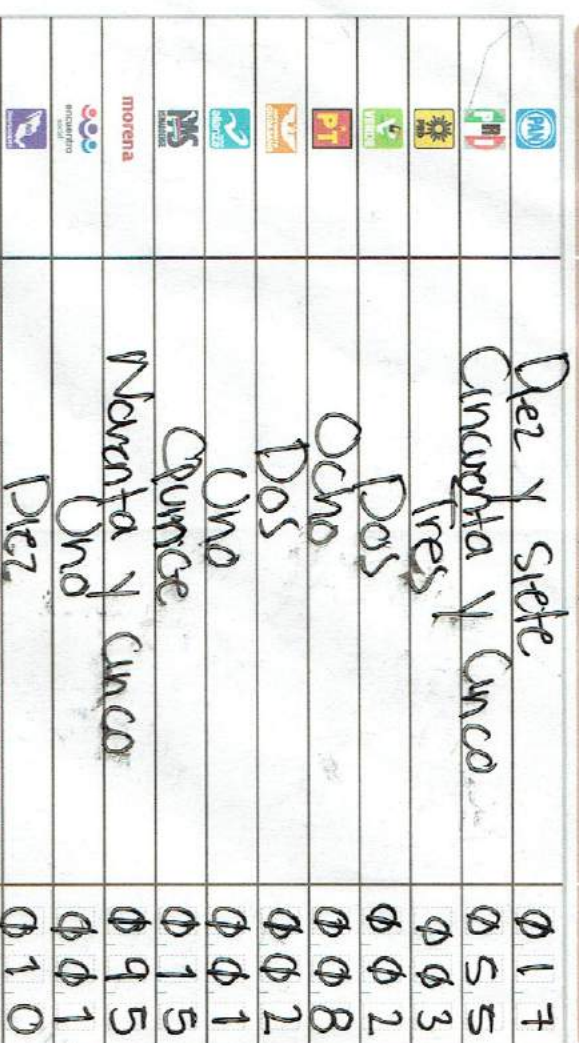 PAN Diez y siete 017
PRI Cincuenta y Cinco 055
PRD Tres 003
VERDE Dos 002
PT Ocho 008
Dos 002
alianza Uno 001
PMS Quince 015
morena Noventa y Cinco 095
encuentro social Uno 001
Diez 010